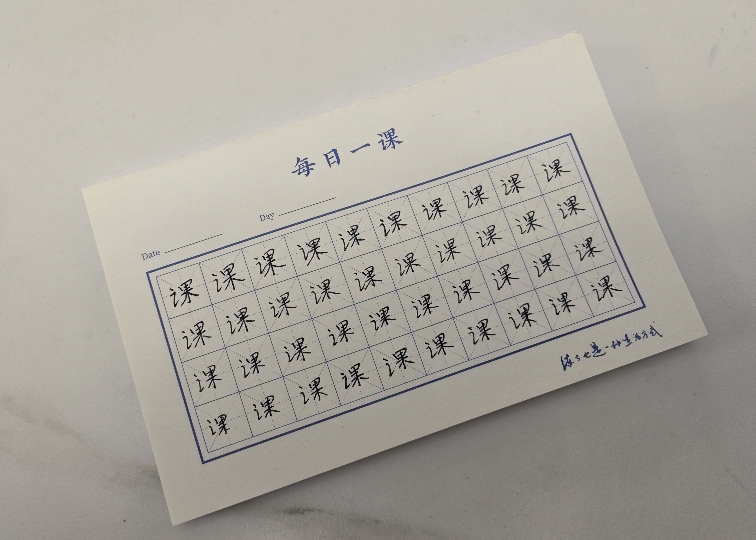 每日一课
Date Day
课课课课课课课课课课
课课课课课课课课课课
课课课课课课课课课课
课课课课课课课课课课
练字也是一种生活方式